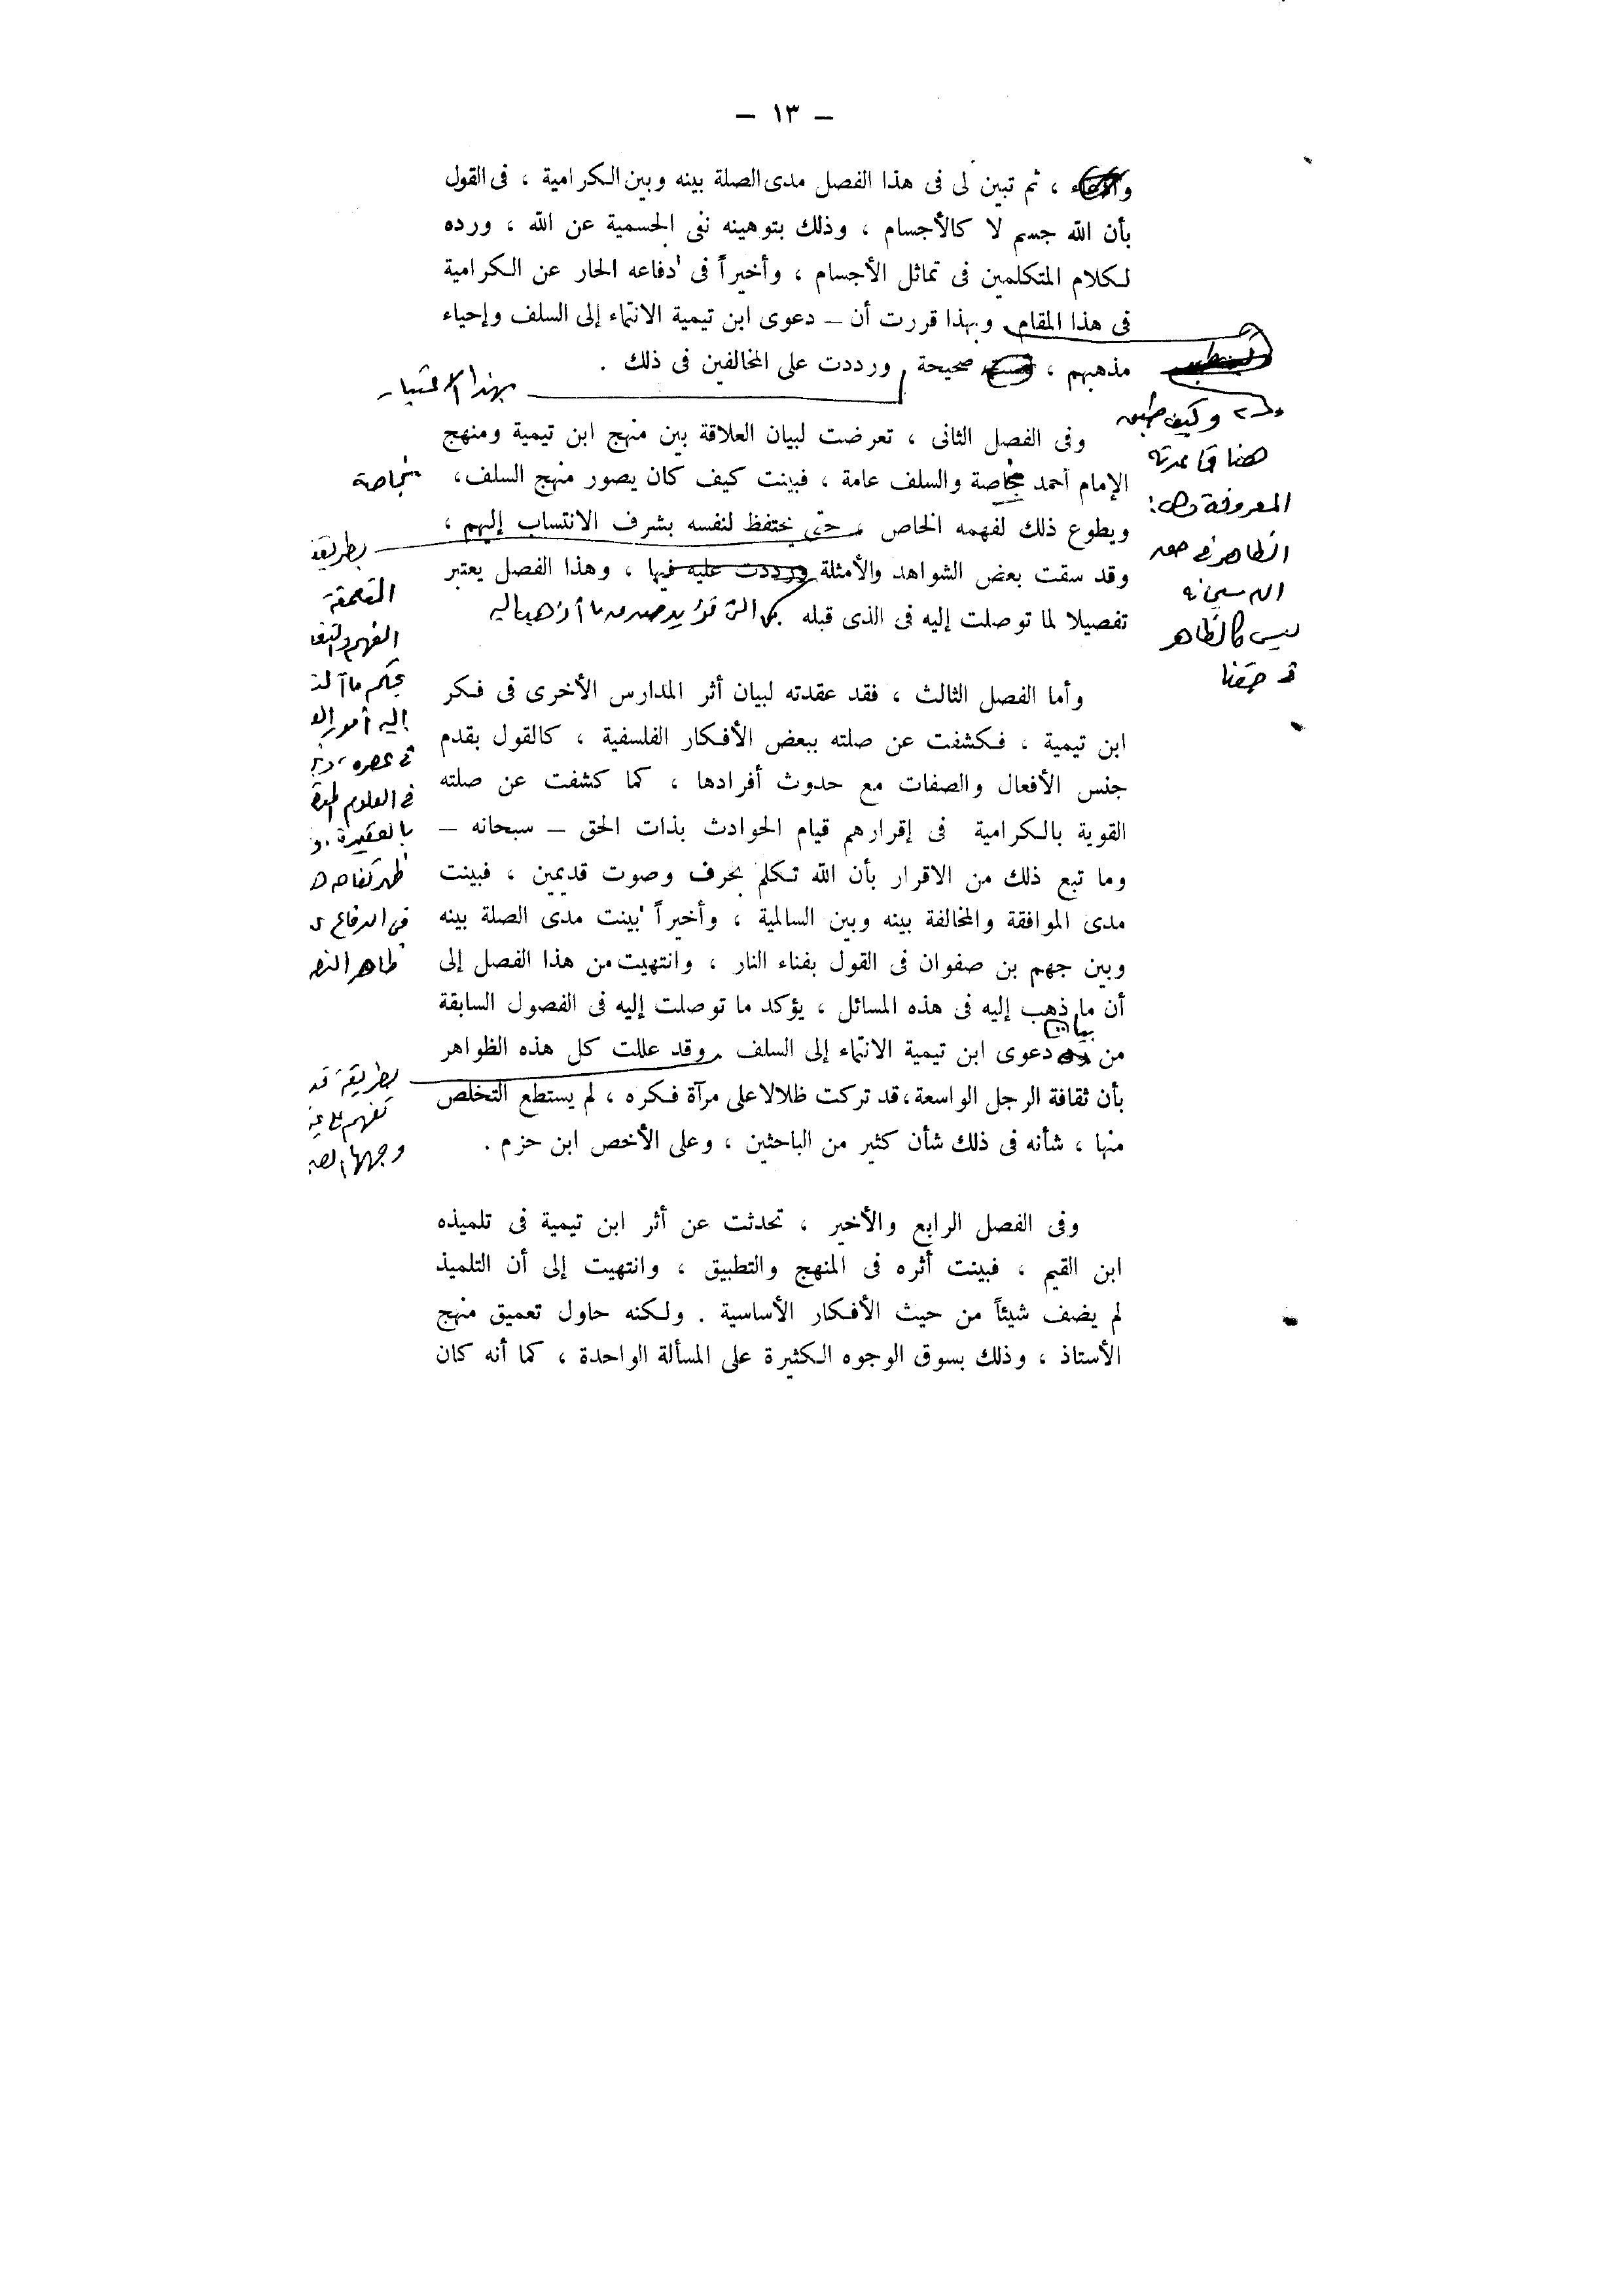 — ١٣ —
، ثم تبين لى فى هذا الفصل مدى الصلة بينه وبين الكرامية ، فى القول
بأن الله جسم لا كالأجسام ، وذلك بتوهينه نفى الجسمية عن الله ، ورده
لكلام المتكلمين فى تماثل الأجسام ، وأخيراً فى دفاعه الحار عن الكرامية
فى هذا المقام وبهذا قررت أن — دعوى ابن تيمية الانتماء إلى السلف وإحياء
مذهبهم ، صحيحة ورددت على المخالفين فى ذلك .
بهذا الاعتبار
وكيف طبق
هنا قاعدته
المعروفة
الظاهر فى
الله سبحانه
ليس كالظاهر
وفى الفصل الثانى ، تعرضت لبيان العلاقة بين منهج ابن تيمية ومنهج
الإمام أحمد بخاصة والسلف عامة ، فبينت كيف كان يصور منهج السلف ،
بخاصة
ويطوع ذلك لفهمه الخاص حتى يحتفظ لنفسه بشرف الانتساب إليهم ،
وقد سقت بعض الشواهد والأمثلة ورددت عليه فيها ، وهذا الفصل يعتبر
تفصيلا لما توصلت إليه فى الذى قبله
بطريقة
الفهم
بحكم ما
إليه أمور
فى عصره
فى العلوم
بالعقيدة
ظهر
فى الدفاع
ظاهر
وأما الفصل الثالث ، فقد عقدته لبيان أثر المدارس الأخرى فى فكر
ابن تيمية ، فكشفت عن صلته ببعض الأفكار الفلسفية ، كالقول بقدم
جنس الأفعال والصفات مع حدوث أفرادها ، كما كشفت عن صلته
القوية بالكرامية فى إقرارهم قيام الحوادث بذات الحق — سبحانه —
وما تبع ذلك من الاقرار بأن الله تكلم بحرف وصوت قديمين ، فبينت
مدى الموافقة والمخالفة بينه وبين السالمية ، وأخيراً بينت مدى الصلة بينه
وبين جهم بن صفوان فى القول بفناء النار ، وانتهيت من هذا الفصل إلى
أن ما ذهب إليه فى هذه المسائل ، يؤكد ما توصلت إليه فى الفصول السابقة
من دعوى ابن تيمية الانتماء إلى السلف وقد عللت كل هذه الظواهر
بطريقة قد
بأن ثقافة الرجل الواسعة ، قد تركت ظلالا على مرآة فكره ، لم يستطع التخلص
منها ، شأنه فى ذلك شأن كثير من الباحثين ، وعلى الأخص ابن حزم .
وفى الفصل الرابع والأخير ، تحدثت عن أثر ابن تيمية فى تلميذه
ابن القيم ، فبينت أثره فى المنهج والتطبيق ، وانتهيت إلى أن التلميذ
لم يضف شيئاً من حيث الأفكار الأساسية . ولكنه حاول تعميق منهج
الأستاذ ، وذلك بسوق الوجوه الكثيرة على المسألة الواحدة ، كما أنه كان